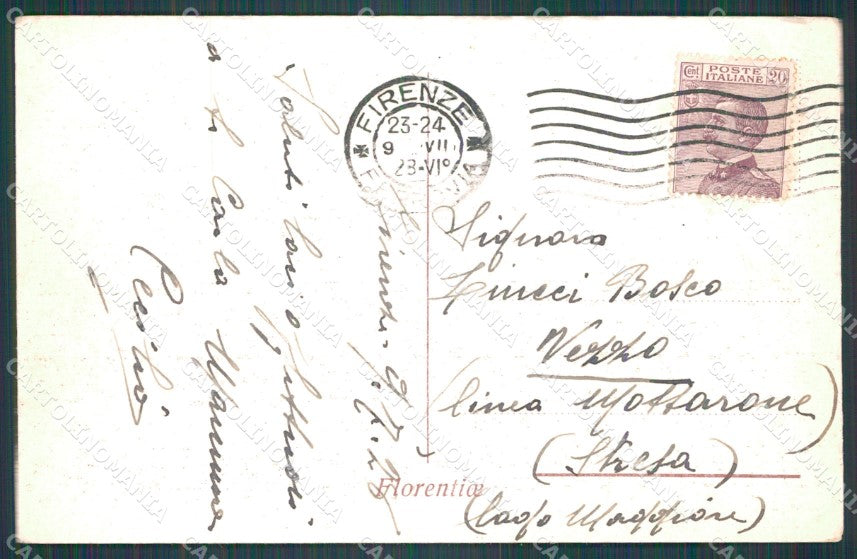 FIRENZE
23-24
9 VII
28-VIº
FERROVIA
Cent POSTE ITALIANE 20
Firenze 9.7.28
Saluti cari affettuosi
a te Carlo Mamma
Cecilia
Signora
Bosco
Vezzo
(linea Mottarone)
(Stresa)
(Lago Maggiore)
Florentiæ
CARTOLINOMANIA